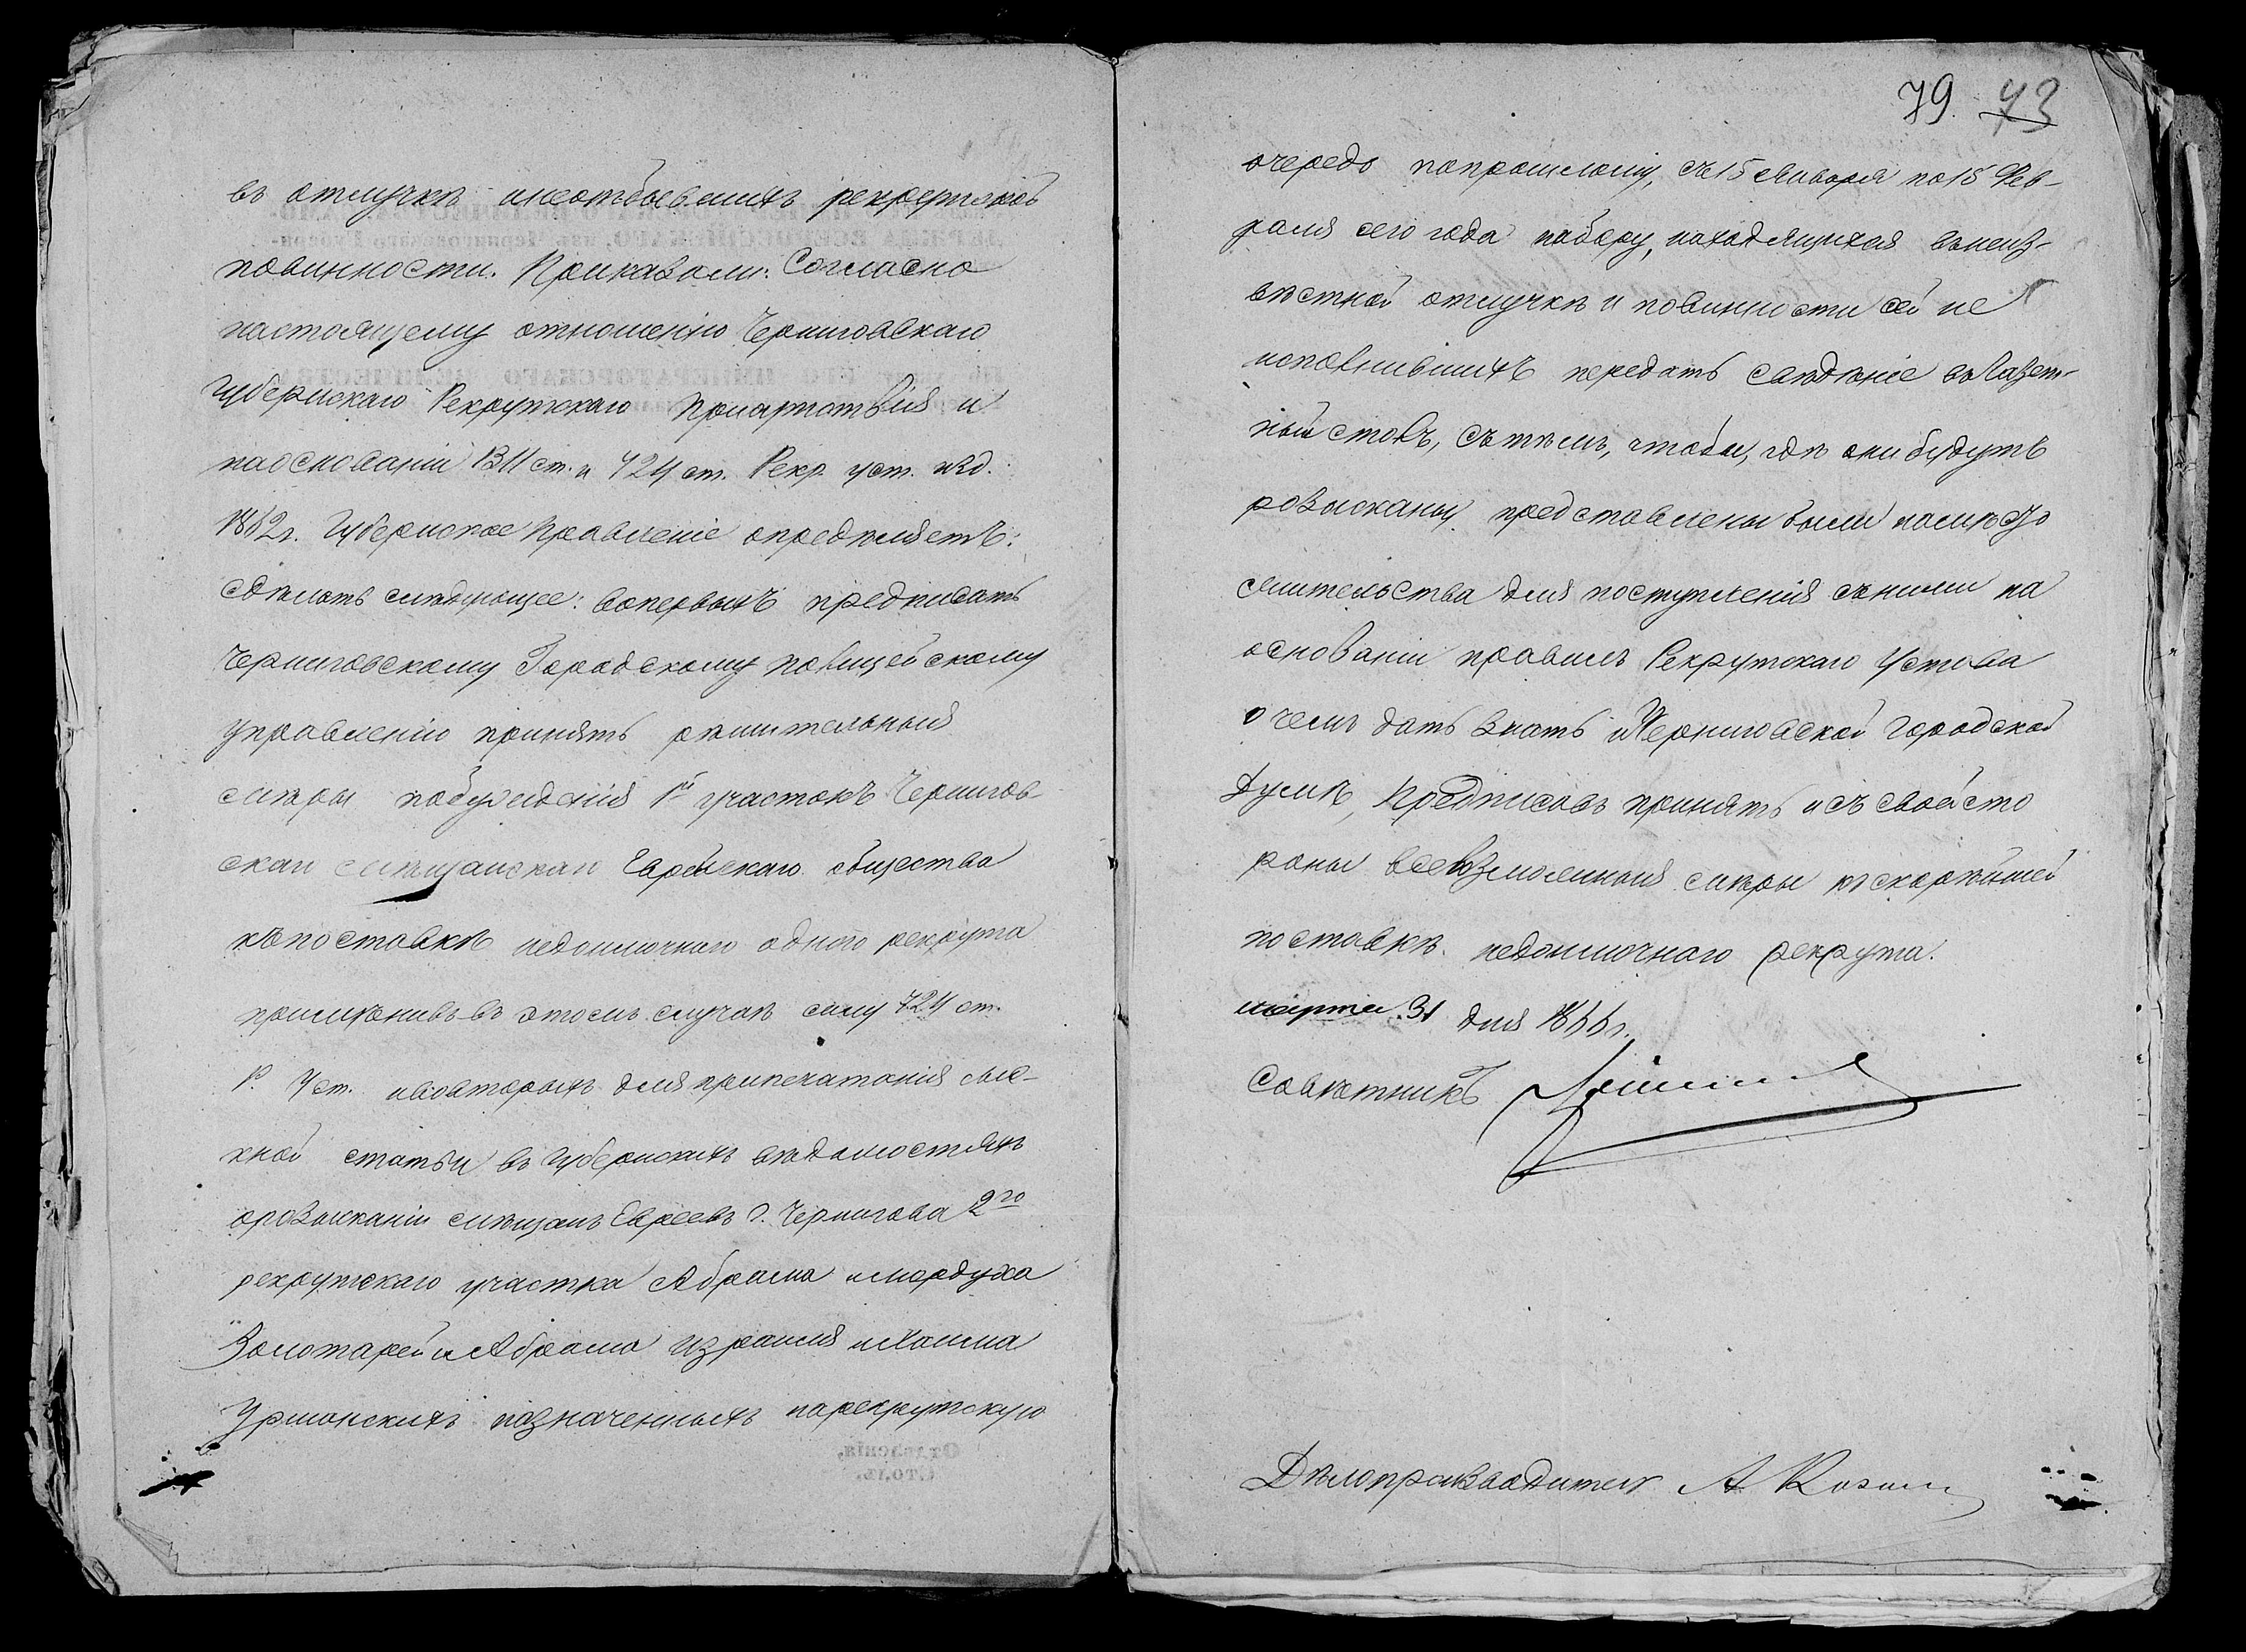 въ отлучкѣ и неотбывшихъ рекрутской
повинности. Приказали: Согласно
настоящему отношенію Черниговскаго
Губернскаго Рекрутскаго Присутствія и
на основаніи 1311 ст. и 724 ст. Рекр. уст. изд.
1862 г. Губернское Правленіе опредѣляетъ:
сдѣлать слѣдующее: вопервыхъ предписать
Черниговскому Городскому Полицейскому
управленію принять рѣшительныя
мѣры побужденія 1й участокъ Чернигов
скаго мѣщанскаго Еврейскаго общества
къ поставкѣ недоимочнаго одного рекрута
примѣнивъ въ этомъ случаѣ силу 724 ст.
Р. Уст. и вовторыхъ для припечатанія сыс-
кной статьи въ Губернскихъ вѣдомостяхъ
о розысканіи мѣщанъ Евреевъ г. Чернигова 2го
рекрутскаго участка Абрама и Мордуха
Золотарей и Абрама Израиля и Хаима
Урманскихъ назначенныхъ на рекрутскую
79. 73
очередь по прошлому, съ 15 Января по 15 Фев-
раля сего года набору, находящихся въ неиз-
вѣстной отлучкѣ и повинности сей не
исполнившихъ передать свѣдѣніе въ Газет-
ный столъ, съ тѣмъ, чтобы, гдѣ они будутъ
розысканы, представлены были по мѣсту
жительства для поступленія съ ними на
основаніи правилъ Рекрутскаго Устава
о чемъ дать знать и Черниговской Городской
Думѣ, предписавъ принять и съ своей сто
роны всевозможныя мѣры къ скорѣйшей
поставкѣ недоимочнаго рекрута.
Марта 31 дня 1866 г.
Совѣтникъ
Дѣлопроизводитель А
Отдѣленія,
Столъ.